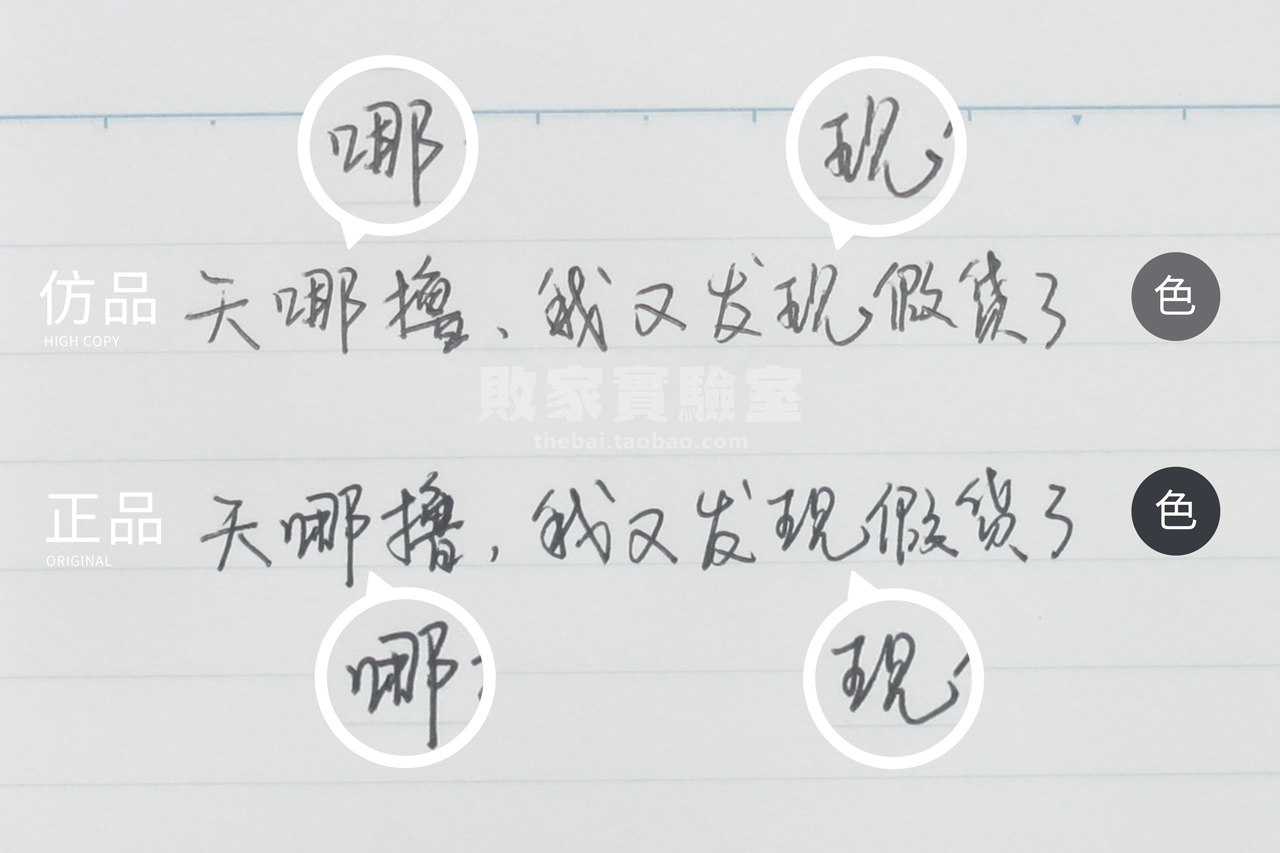 哪 现
仿品 天哪撸、我又发现假货了 色
HIGH COPY
敗家實驗室
thebai.taobao.com
正品 天哪撸，我又发现假货了 色
ORIGINAL
哪 现